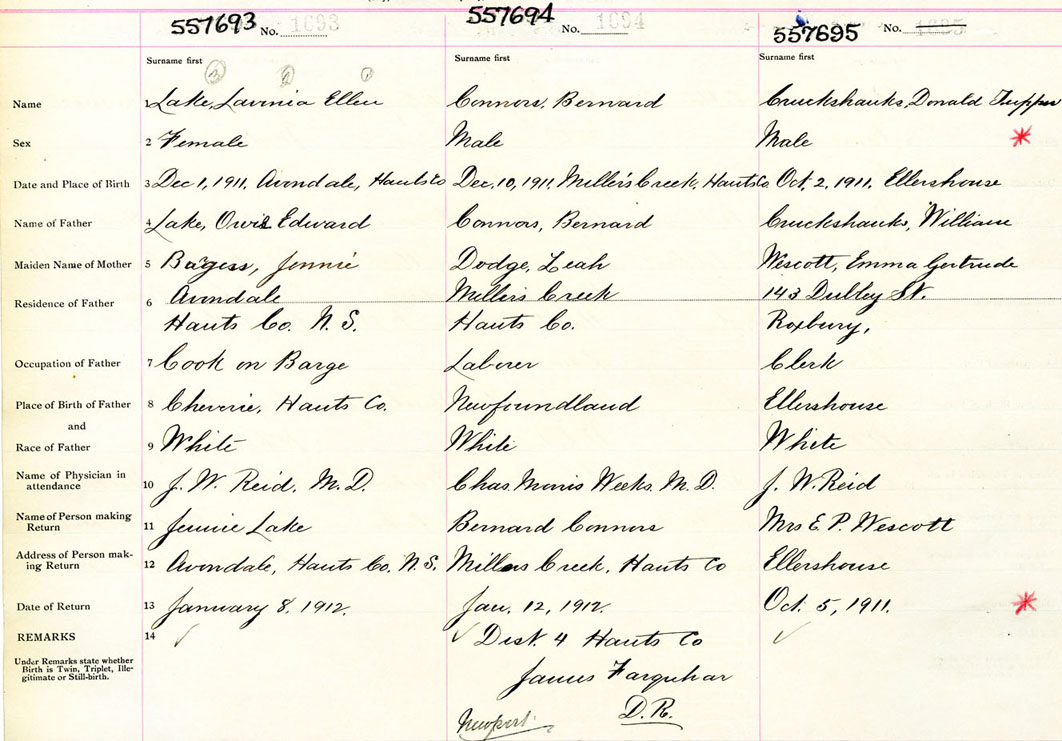 557693 No. 1693 557694 No. 1694 557695 No. 1695
Surname first Surname first Surname first
Name 1 Lake, Lavinia Ellen Connors, Bernard Cruckshanks, Donald Tupper
Sex 2 Female Male Male
Date and Place of Birth 3 Dec 1, 1911, Avondale, Hants Co Dec, 10, 1911, Miller's Creek, Hants Co, Oct. 2, 1911, Ellershouse
Name of Father 4 Lake, Edward Connors, Bernard Cruckshanks, William
Maiden Name of Mother 5 Jennie Dodge, Leah Wescott, Emma Gertrude
Residence of Father 6 Avondale Miller's Creek 143 St.
Hants Co. N. S. Hants Co. Roxbury,
Occupation of Father 7 Cook on Barge Laborer Clerk
Place of Birth of Father 8 Cheverie, Hants Co. Newfoundland Ellershouse
and
Race of Father 9 White White White
Name of Physician in
attendance 10 J. W. Reid, M. D. Chas. Morris Weeks, M. D. J. W. Reid
Name of Person making
Return 11 Jennie Lake Bernard Connors Mrs E. P. Wescott
Address of Person mak-
ing Return 12 Avondale, Hants Co. N. S. Millers Creek, Hants Co Ellershouse
Date of Return 13 January 8, 1912. Jan. 12, 1912. Oct. 5, 1911.
REMARKS 14 Dist. 4 Hants Co
Under Remarks state whether
Birth is Twin, Triplet, Ille-
gitimate or Still-birth.
James Farquhar
D. R.
Newport